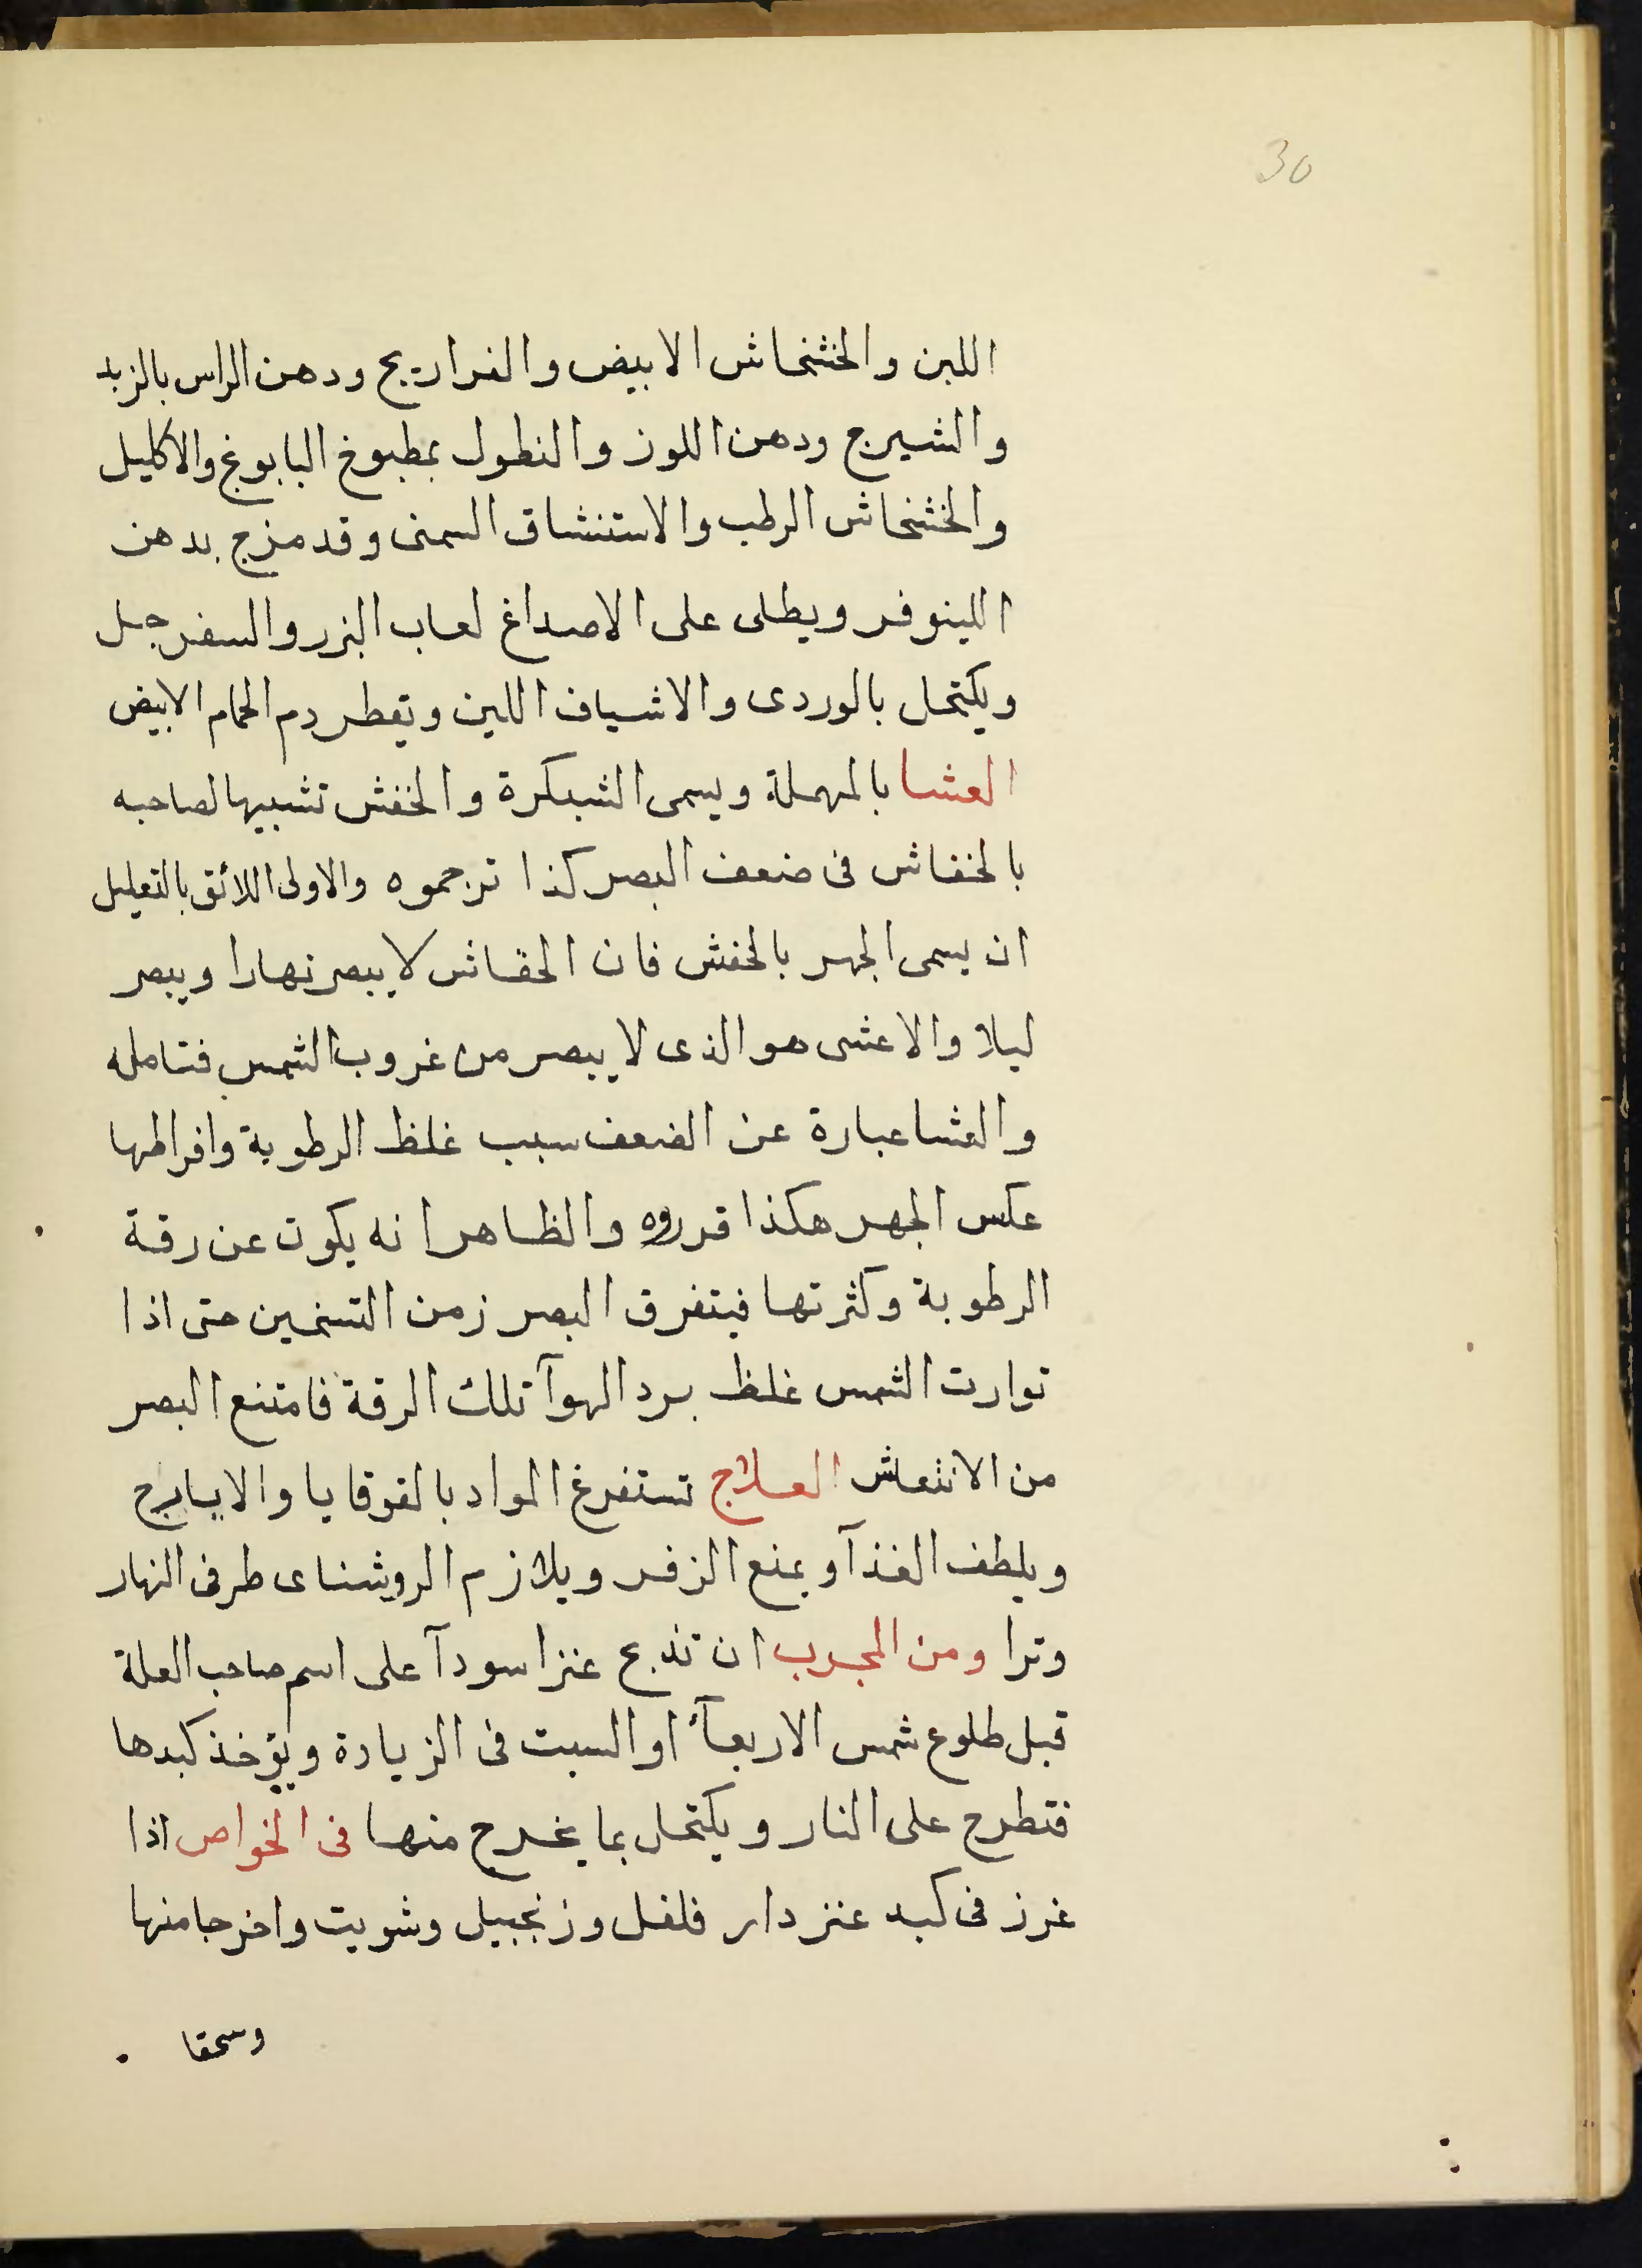 30
اللبن والخشخاش الابيض والفراريج ودهن الراس بالزبد
والشيرج ودهن اللوز والنطول بمطبوخ البابونج والاكليل
والخشخاش الرطب والاستنشاق السمنى وقد مزج بدهن
اللينوفر ويطلى على الاصداغ لعاب البزر والسفرجل
ويكتحل بالوردى والاشياف اللين ويقطر دم الحمام الابيض
العشا بالمهملة ويسمى الشبكرة والخفش تشبيها لصاحبه
بالخفاش فى ضعف البصر كذا ترجموه والاولى اللائق بالتعليل
ان يسمى الجهر بالخفش فان الخفاش لا يبصر نهارا ويبصر
ليلا والاعشى هو الذى لا يبصر من غروب الشمس فتامله
والعشا عبارة عن الضعف سبب غلظ الرطوبة وافراطها
عكس الجهر هكذا قرروه والظاهر انه يكون عن رقة
الرطوبة وكثرتها فيتفرق البصر زمن التسخين حتى اذا
توارت الشمس غلظ برد الهوآ تلك الرقة فامتنع البصر
من الانتعاش العلاج تستفرغ المواد بالقوقايا والايارج
ويلطف الغذآ ويمنع الزفر ويلازم الروشناى طرفى النهار
وترا ومن المجرب ان تذبح عنزا سودآ على اسم صاحب العلة
قبل طلوع شمس الاربعآء او السبت فى الزيادة ويؤخذ كبدها
فتطرح على النار ويكتحل بما يخرج منها فى الخواص اذا
غرز فى كبد عنز دار فلفل وزنجبيل وشويت واخرجا منها
وسحقا